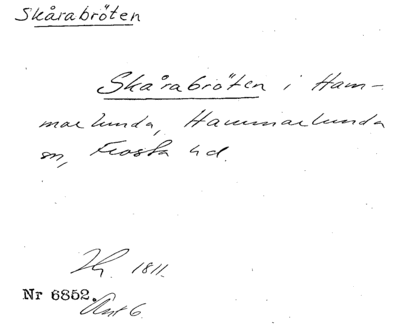 Skårabröten
Skårabröten i Ham-
marlunda, Hammarlunda
sn, Frosta hd.
1811.
Nr 6852.
6.